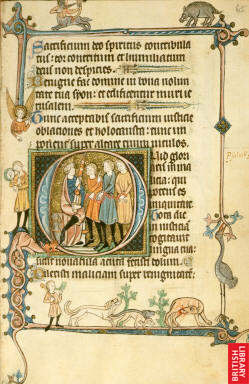 Sacrificium deo spiritus contribula
tus: cor contritum et humiliatum
deus non despicies.
Benigne fac domine in bona volun
tate tua syon: et edificentur muri ie
rusalem.
Tunc acceptabis sacrificium iusticie
oblaciones et holocausta: tunc im
ponent super altare tuum vitulos.
Quid glori
aris in ma
licia: qui
potens es
iniquitate
Tota die
iniusticia
cogitavit
lingua tua
sicut novacula acuta fecisti dolum.
Dilexisti maliciam super benignitatem:
BRITISH
LIBRARY